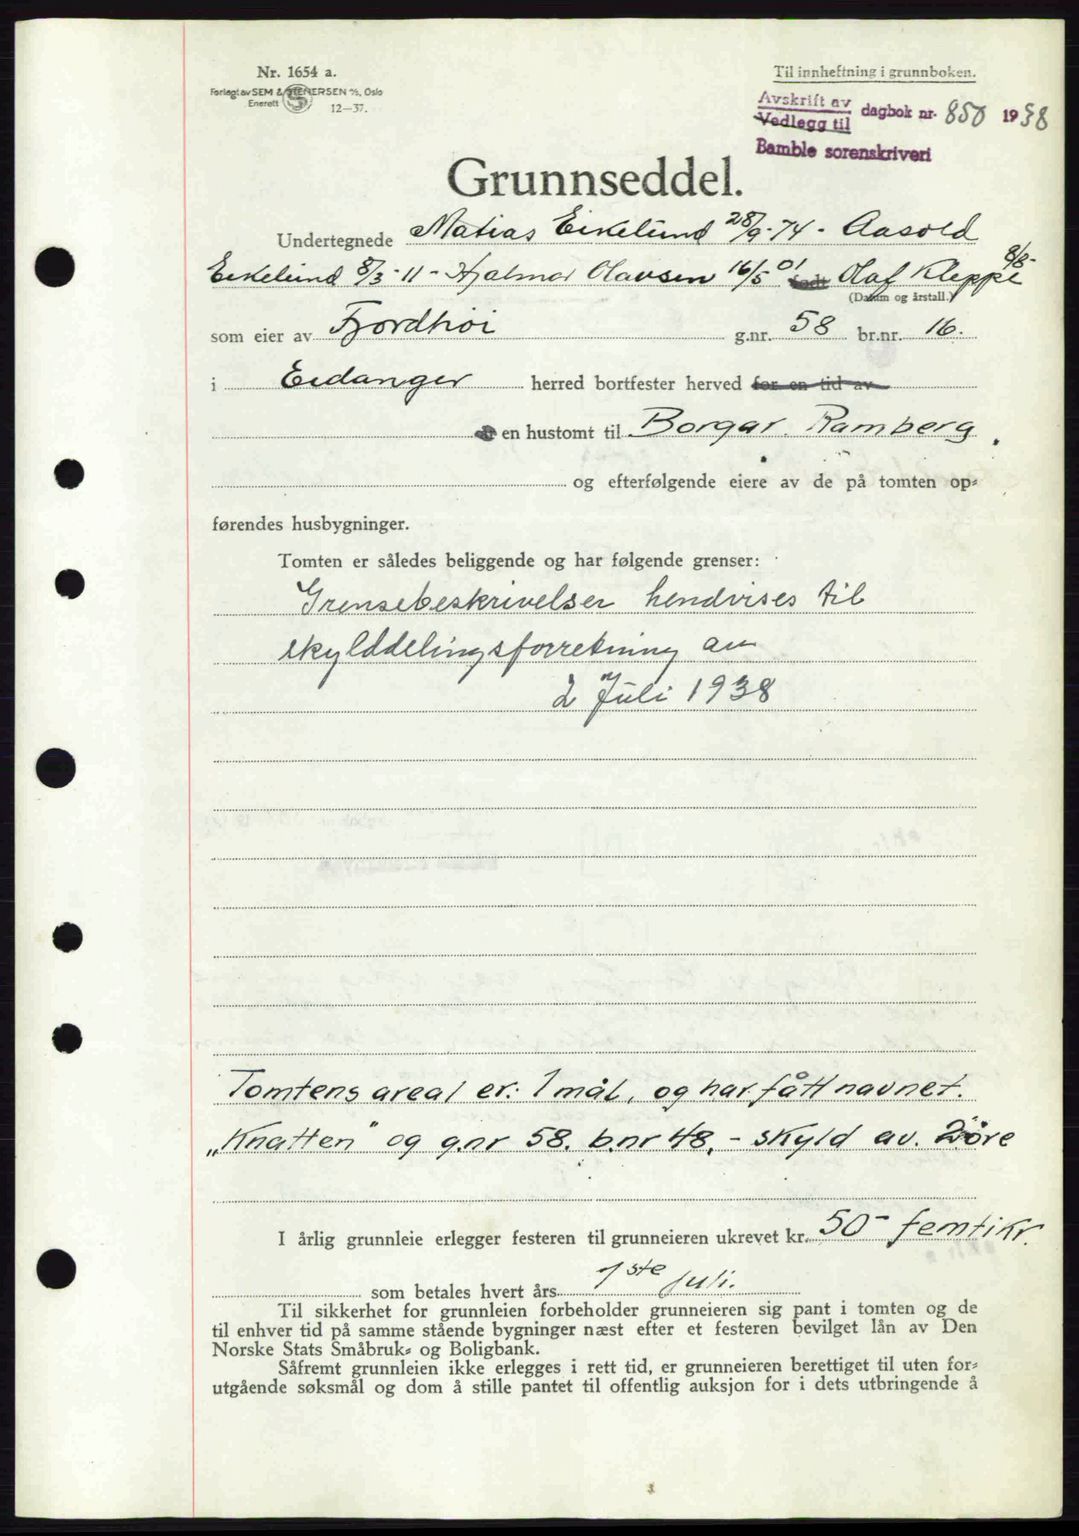 Nr. 1654 a.
Forlagt av SEM & STENERSEN A/S, Oslo
Enerett 12—37.
Til innheftning i grunnboken.
Avskrift av
Vedlegg til dagbok nr. 850 1938
Bamble sorenskriveri
Grunnseddel.
Undertegnede Matias Eikelund 28/9-74 - Aasold
Eikelund 8/3-11 - Hjalmar Olavsen 16/5 01 født Olaf Kleppe 8/8-
(Datum og årstall.)
som eier av Fjordhøi g.nr. 58 br.nr. 16.
i Eidanger herred bortfester herved for en tid av
en hustomt til Borgar Ramberg.
og efterfølgende eiere av de på tomten op-
førendes husbygninger.
Tomten er således beliggende og har følgende grenser:
Grensebeskrivelser hendvises til
skylddelingsforretning av
2 Juli 1938
Tomtens areal er: 1 mål, og har fått navnet.
„Knatten" og g.nr 58. b.nr 48, - skyld av. 2 øre
I årlig grunnleie erlegger festeren til grunneieren ukrevet kr. 50- femti kr.
som betales hvert års 1ste juli.
Til sikkerhet for grunnleien forbeholder grunneieren sig pant i tomten og de
til enhver tid på samme stående bygninger næst efter et festeren bevilget lån av Den
Norske Stats Småbruk- og Boligbank.
Såfremt grunnleien ikke erlegges i rett tid, er grunneieren berettiget til uten for-
utgående søksmål og dom å stille pantet til offentlig auksjon for i dets utbringende å